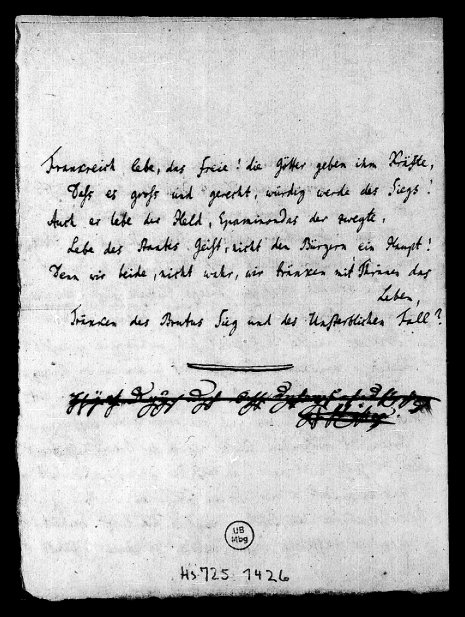 Frankreich lebe, das freie! die Götter geben ihm Kräfte,
Daß es groß und gerecht, würdig werde des Siegs!
Auch er lebe der Held, Epaminondas der zweyte,
Lebe des Staates Geist, nicht den Bürgern ein Haupt!
Denn wir beide, nicht wahr, wir tränken mit Thränen das
Leben,
Tränken des Brutus Sieg und des Unsterblichen Fall?
UB
Mbg
Hs 725 : 1426